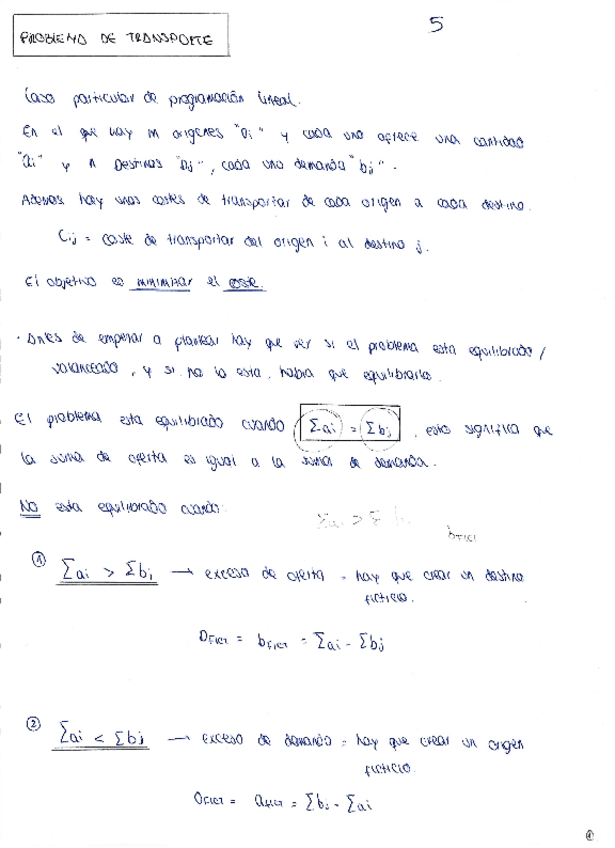 5
PROBLEMA DE TRANSPORTE
Caso particular de programación lineal.
En el que hay m orígenes "Oi" y cada uno ofrece una cantidad
"ai" y n Destinos "Dj", cada uno demanda "bj".
Ademas hay unos costes de transportar de cada origen a cada destino.
Cij = coste de transportar del origen i al destino j.
El objetivo es minimizar el coste.
· Antes de empezar a plantear hay que ver si el problema esta equilibrado /
balanceado, y si no lo esta, habria que equilibrarlo.
El problema esta equilibrado cuando Σai = Σbj, esto significa que
la suma de oferta es igual a la suma de demanda.
NO esta equilibrado cuando:
Σai > Σ b
bFICT
① Σai > Σbj → exceso de oferta = hay que crear un destino
ficticio.
DFICT = bFICT = Σai - Σbj
② Σai < Σbj → exceso de demanda = hay que crear un origen
ficticio.
OFICT = aFICT = Σbj - Σai